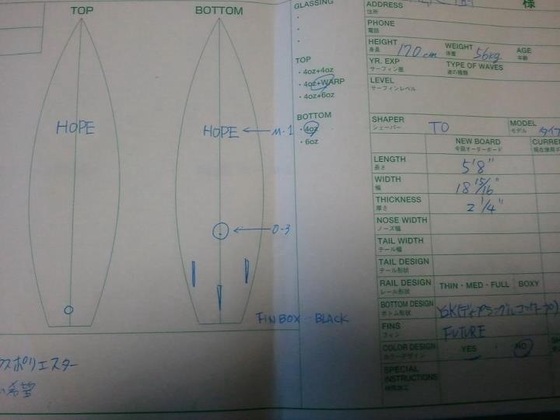 TOP
BOTTOM
HOPE
HOPE
D-3
FINBOX - BLACK
GLASSING
TOP
・4oz+4oz
・4oz+WARP
・4oz+6oz
BOTTOM
・4oz
・6oz
ADDRESS
住所
様
PHONE
電話
HEIGHT
身長
170 cm
WEIGHT
体重
56kg
AGE
年齢
YR. EXP
サーフィン歴
TYPE OF WAVES
波の種類
LEVEL
サーフィンレベル
SHAPER
シェーパー
TO
MODEL
モデル
NEW BOARD
LENGTH
長さ
5'8"
WIDTH
幅
18 15/16"
THICKNESS
厚さ
2 1/4"
NOSE WIDTH
ノーズ幅
TAIL WIDTH
テール幅
TAIL DESIGN
テール形状
RAIL DESIGN
レール形状
THIN - MED - FULL
BOXY
BOTTOM DESIGN
ボトム形状
FINS
フィン
FUTURE
COLOR DESIGN
カラーデザイン
YES
NO
SPECIAL
INSTRUCTIONS
特別加工
ポリエスター
希望